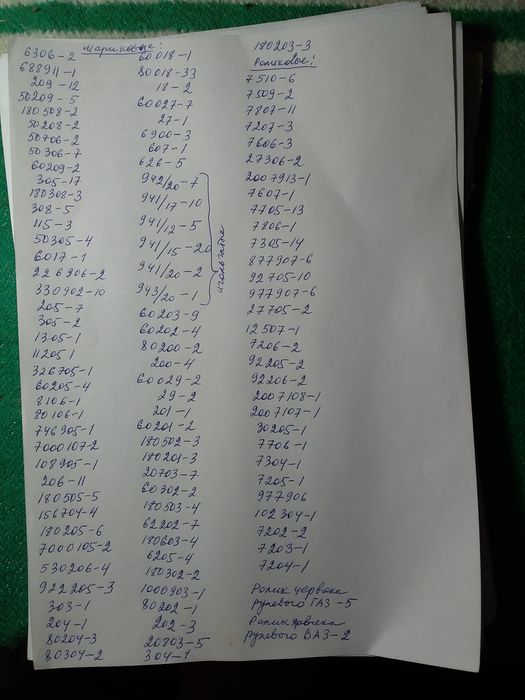 Шариковые:
6306-2
688911-1
209-12
50209-5
180508-2
50208-2
50706-2
50306-7
60209-2
305-17
180308-3
308-5
115-3
50305-4
6017-1
226906-2
330902-10
205-7
305-2
1305-1
11205 1
326705-1
60205-4
8106-1
80106-1
746905-1
7000107-2
108905-1
206-11
180505-5
156704-4
180205-6
7000105-2
530206-4
922205-3
303-1
204-1
80204-3
80304-2
60018-1
80018-33
18-2
60027-7
27-1
6900-3
607-1
626-5
942/20-7
941/17-10
941/12-5
941/15-20
941/20-2
943/20-1
игольчатые
60203-9
60202-4
80200-2
200-4
60029-2
29-2
201-1
60201-2
180502-3
180201-3
20703-7
60302-2
180503-4
62202-7
180603-4
6205-4
180302-2
1000903-1
80202-1
202-3
20803-5
304-1
180203-3
Роликовые:
7510-6
7509-2
7807-11
7207-3
7606-3
27306-2
2007913-1
7607-1
7705-13
7806-1
7305-14
877907-6
92705-10
977907-6
27705-2
12507-1
7206-2
92205-2
92206-2
2007108-1
2007107-1
30205-1
7706-1
7304-1
7205-1
977906
102304-1
7202-2
7203-1
7204-1
Ролик червяка
рулевого ГАЗ-5
Ролик червяка
рулевого ВАЗ-2